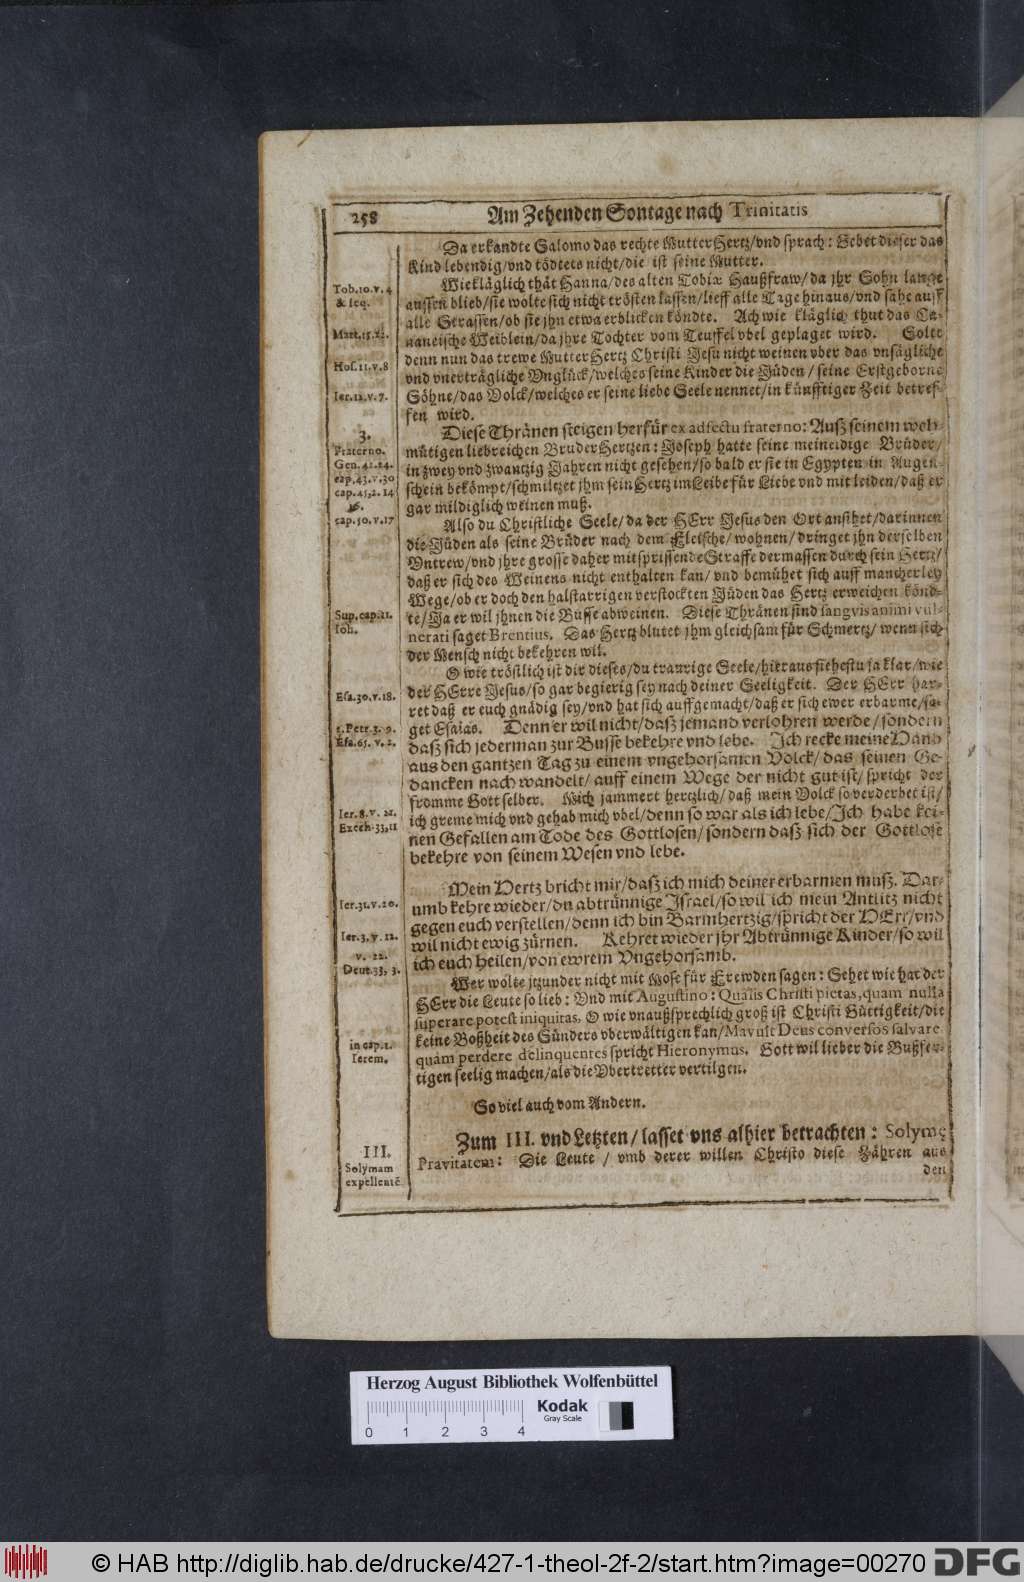 258 Am Zehenden Sontage nach Trinitatis
Da erkandte Salomo das rechte MutterHertz/vnd sprach: Gebet dieser das
Kind lebendig/vnd tödtets nicht/die ist seine Mutter.
Tob.10.v.4
& seq.
Wie kläglich thät Hanna/des alten Tobiæ Haußfraw/da jhr Sohn lange
aussen blieb/sie wolte sich nicht trösten lassen/lieff alle Tage hinaus/vnd sahe auff
alle Strassen/ob sie jhn etwa erblicken köndte. Ach wie kläglich thut das Ca-
Matt.15.22.
naneische Weiblein/da jhre Tochter vom Teuffel vbel geplaget wird. Solte
denn nun das trewe MutterHertz Christi Jesu nicht weinen vber das vnsägliche
Hos.11.v.8
vnd vnerträgliche Vnglück/welches seine Kinder die Jüden/seine Erstgeborne
Ier.12.v.7.
Söhne/das Volck/welches er seine liebe Seele nennet/in künfftiger Zeit betref-
fen wird.
3.
Fraterno.
Gen.42.24.
cap.43.v.30
cap.45,2.14
cap.50.v.17
Diese Thränen steigen herfür ex adfectu fraterno: Auß seinem weh-
mütigen liebreichen BruderHertzen: Joseph hatte seine meineidige Brüder/
in zwey vnd zwantzig Jahren nicht gesehen/so bald er sie in Egypten in Augen-
schein bekömpt/schmiltzet jhm sein Hertz im Leibe für Liebe vnd mit leiden/daß er
gar mildiglich weinen muß.
Also du Christliche Seele/da der HErr Jesus den Ort ansihet/darinnen
die Jüden als seine Brüder nach dem Fleische/wohnen/dringet jhn derselben
Vntrew/vnd jhre grosse daher mitsprissende Straffe dermassen durch sein Hertz/
daß er sich des Weinens nicht enthalten kan/vnd bemühet sich auff mancherley
Wege/ob er doch den halstarrigen verstockten Jüden das Hertz erweichen könd-
Sup.cap.11.
Ioh.
te/Ja er wil jhnen die Busse abweinen. Diese Thränen sind sangvis animi vul-
nerati saget Brentius. Das Hertz blutet jhm gleichsam für Schmertz/wenn sich
der Mensch nicht bekehren wil.
O wie tröstlich ist dir dieses/du traurige Seele/hieraus siehestu ja klar/wie
Esa.30.v.18.
der HErre Jesus/so gar begierig sey nach deiner Seeligkeit. Der HErr har-
ret daß er euch gnädig sey/vnd hat sich auffgemacht/daß er sich ewer erbarme/sa-
2.Petr.3.9.
Esa.65.v.2.
get Esaias. Denn er wil nicht/daß jemand verlohren werde/sondern
daß sich jederman zur Busse bekehre vnd lebe. Ich recke meine Hand
aus den gantzen Tag zu einem vngehorsamen Volck/das seinen Ge-
dancken nach wandelt/auff einem Wege der nicht gut ist/spricht der
fromme Gott selber. Mich jammert hertzlich/daß mein Volck so verderbet ist/
Ier.8.v.21.
Ezech.33,11
ich greme mich vnd gehab mich vbel/denn so war als ich lebe/Ich habe kei-
nen Gefallen am Tode des Gottlosen/sondern daß sich der Gottlose
bekehre von seinem Wesen vnd lebe.
Mein Hertz bricht mir/daß ich mich deiner erbarmen muß. Dar-
Ier.31.v.20.
umb kehre wieder/du abtrünnige Israel/so wil ich mein Antlitz nicht
gegen euch verstellen/denn ich bin Barmhertzig/spricht der HErr/vnd
Ier.3.v.12.
v. 22.
wil nicht ewig zürnen. Kehret wieder jhr Abtrünnige Kinder/so wil
ich euch heilen/von ewrem Vngehorsamb.
Deut.33, 3.
Wer wolte jtzunder nicht mit Mose für Frewden sagen: Sehet wie hat der
HErr die Leute so lieb: Vnd mit Augustino: Qualis Christi pietas, quam nulla
superare potest iniquitas. O wie vnaußsprechlich groß ist Christi Güttigkeit/die
in cap.1.
Ierem.
keine Boßheit des Sünders vberwältigen kan/Mavult Deus conversos salvare
quàm perdere delinquentes spricht Hieronymus. Gott wil lieber die Bußfer-
tigen seelig machen/als die Vbertretter vertilgen.
So viel auch vom Andern.
III.
Solymam
expellentē.
Zum III. vnd Letzten/lasset vns alhier betrachten: Solymę
Pravitatem: Die Leute/vmb derer willen Christo diese Zähren aus
den
Herzog August Bibliothek Wolfenbüttel
Kodak
Gray Scale
0 1 2 3 4
© HAB http://diglib.hab.de/drucke/427-1-theol-2f-2/start.htm?image=00270 DFG